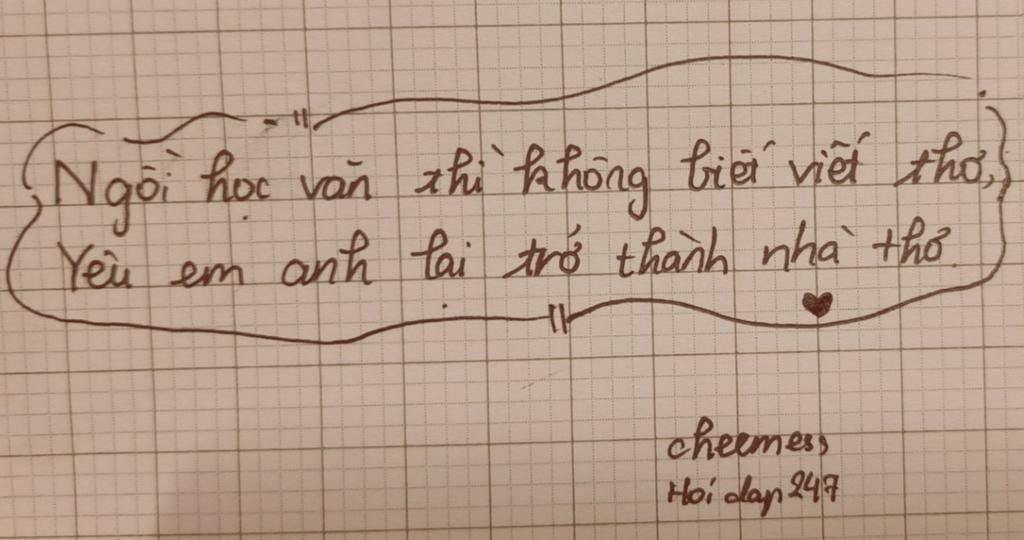 Ngồi học văn thì không biết viết thơ,
Yêu em anh lại trở thành nhà thơ.
cheemess
Hoi dap 247